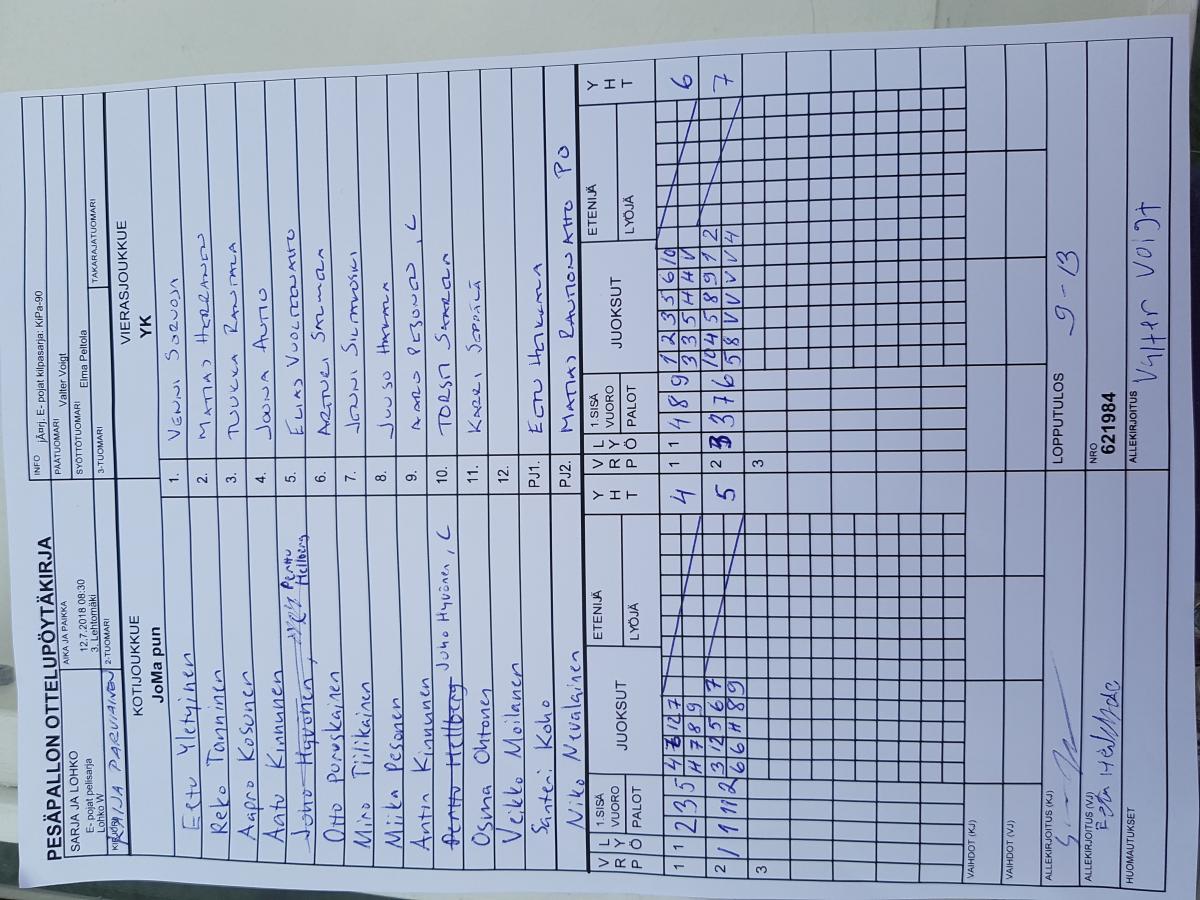 PESÄPALLON OTTELUPÖYTÄKIRJA
INFO jÄ¤rj. E- pojat kilpasarja: KiPa-90
SARJA JA LOHKO
E- pojat pelisarja
Lohko W
AIKA JA PAIKKA
12.7.2018 08:30
3. Lehtomäki
PÄÄTUOMARI Valter Voigt
SYÖTTÖTUOMARI Elma Peltola
KIRJURI
PARVIAINEN
2-TUOMARI
3-TUOMARI
TAKARAJATUOMARI
KOTIJOUKKUE
JoMa pun
VIERASJOUKKUE
YK
Eetu Yletyinen
Reko Tanninen
Aapro Kosonen
Anttu Kinnunen
Juho Hyvönen, Perttu Hellberg
Otto Puruskainen
Miro Tiilikainen
Miika Pesonen
Antin Kinnunen
Perttu Hellberg Juho Hyvönen, C
Osma Ohtonen
Veikko Moilanen
Santeri Koho
Niko Nevalainen
1. VENNI SORVOJA
2. MATIAS HERRANEN
3. TUUKKA RANTALA
4. JOONA AUTIO
5. ELIAS VUOLTEENAHO
6. ARTTURI SALMELA
7. JOONI SILTAKOSKI
8. JUUSO HAKALA
9. AARO PESONEN, C
10. TORSTI SAARELA
11. KARRI SEPPÄLÄ
12.
PJ1. EETU HEIKKALA
PJ2. MATIAS RAUTIONAHO PO
V R P
L Y Ö
1.SISÄ VUORO
PALOT
JUOKSUT
ETENIJÄ
LYÖJÄ
Y H T
V R P
L Y Ö
1.SISÄ VUORO
PALOT
JUOKSUT
ETENIJÄ
LYÖJÄ
Y H T
1 1 2 3 5 4 6 12 7 4
H 7 8 9
1 1 4 8 9 1 2 3 5 6 10 6
3 3 5 H H V
2 1 1 11 2 3 12 5 6 7 5
6 6 H 8 9
2 3 3 7 6 10 4 5 8 9 1 2 7
5 8 V V V V 4
3
3
VAIHDOT (KJ)
VAIHDOT (VJ)
ALLEKIRJOITUS (KJ)
LOPPUTULOS 9-13
ALLEKIRJOITUS (VJ)
NRO
621984
HUOMAUTUKSET
ALLEKIRJOITUS
Valter Voigt